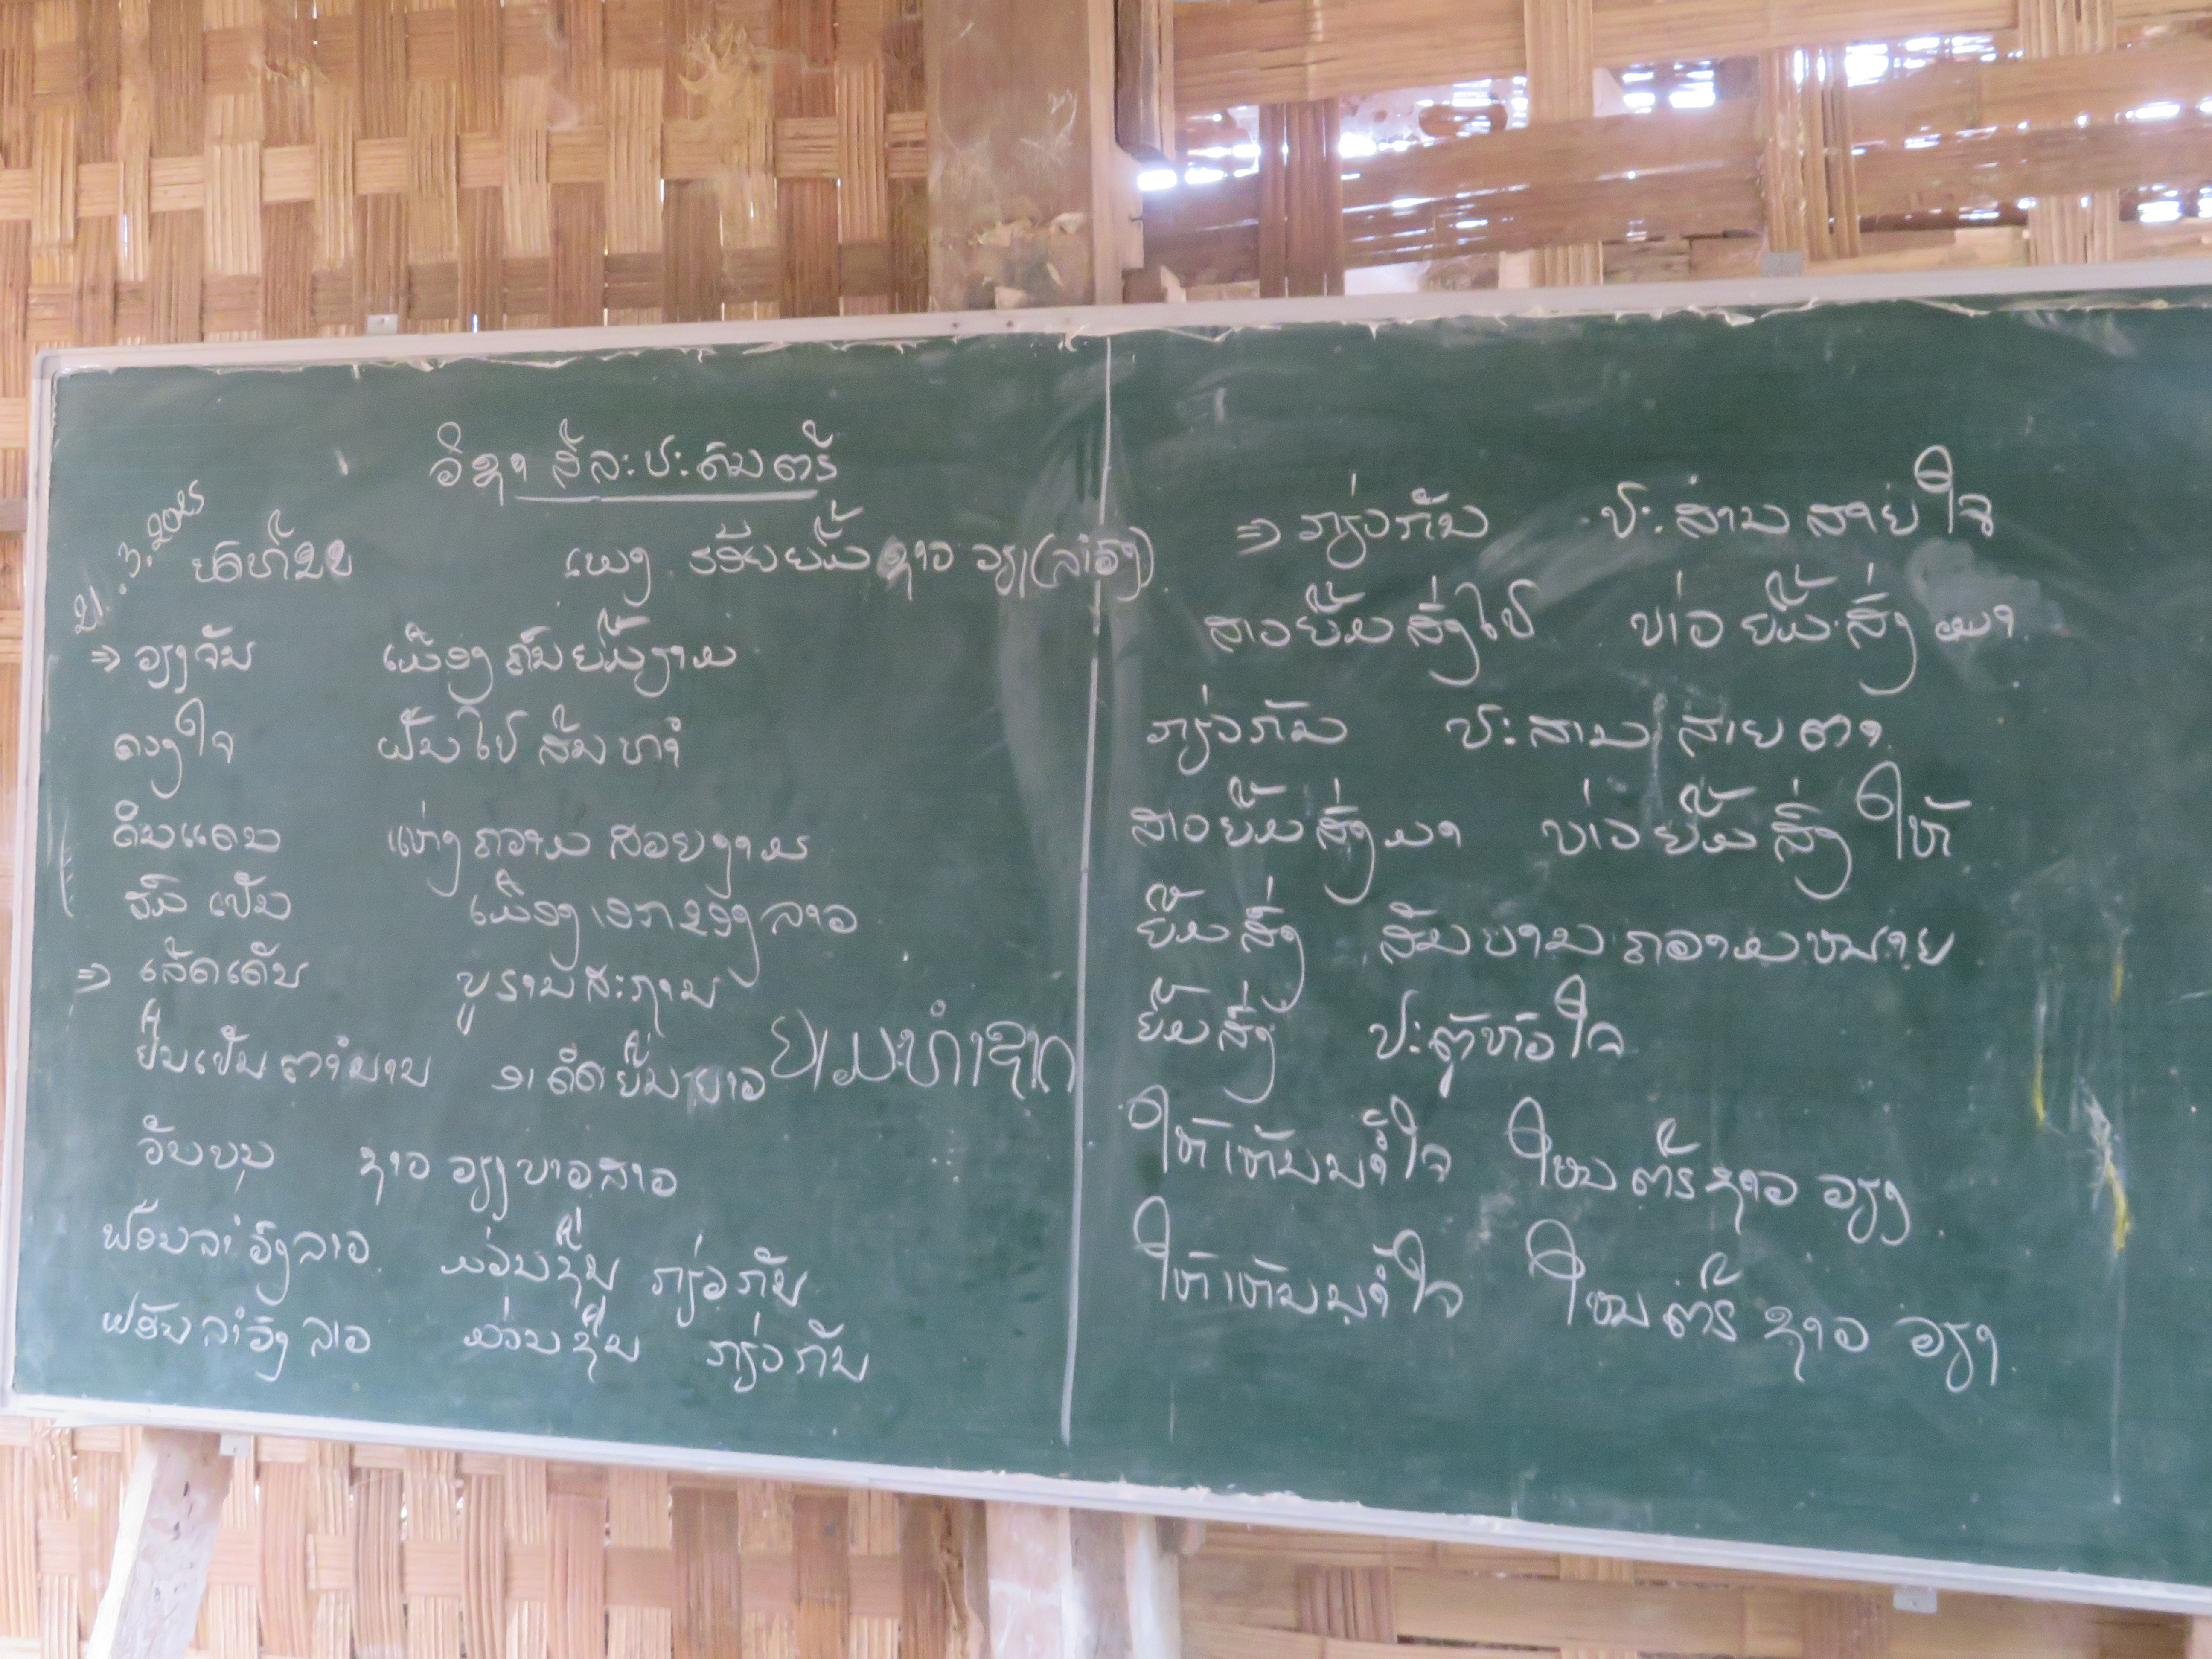 ວິຊາ ສິລະປະດົນຕຣີ
21.3.2025
ບົດທີ່ 22 ເພງ ຮອຍຍິ້ມຊາວວຽງ (ລຳວົງ)
⇒ ວຽງຈັນ ເມືອງຄົນຍິ້ມງາມ
ດວງໃຈ ຝັນໄປສົມທຳ
ດິນແດນ ແຫ່ງຄວາມສວຍງາມ
ສົມເປັນ ເມືອງເອກຂອງລາວ
⇒ ເລັດເດັ່ນ ບູຮານສະຖານ
ຢືນເປັນຕຳນານ ອາດິດຍືນຍາວ
ວັນບຸນ ຊາວວຽງບ່າວສາວ
ຟ້ອນລຳວົງລາວ ມ່ວນຊື່ນ ກ່ຽວກັນ
ຟ້ອນລຳວົງລາວ ມ່ວນຊື່ນ ກ່ຽວກັນ
⇒ ກ່ຽວກັນ ປະສານສາຍໃຈ
ສາວຍິ້ມສົ່ງໄປ ບ່າວຍິ້ມສົ່ງມາ
ກ່ຽວກັນ ປະສານສາຍຕາ
ສາວຍິ້ມສົ່ງມາ ບ່າວຍິ້ມສົ່ງໃຫ້
ຍິ້ມສົ່ງ ສັນຍານຄວາມຫມາຍ
ຍິ້ມສົ່ງ ປະຕູຫົວໃຈ
ໃຫ້ເຫັນນ້ຳໃຈ ໃຫມຕຣີຊາວວຽງ
ໃຫ້ເຫັນນ້ຳໃຈ ໃຫມຕຣີຊາວວຽງ